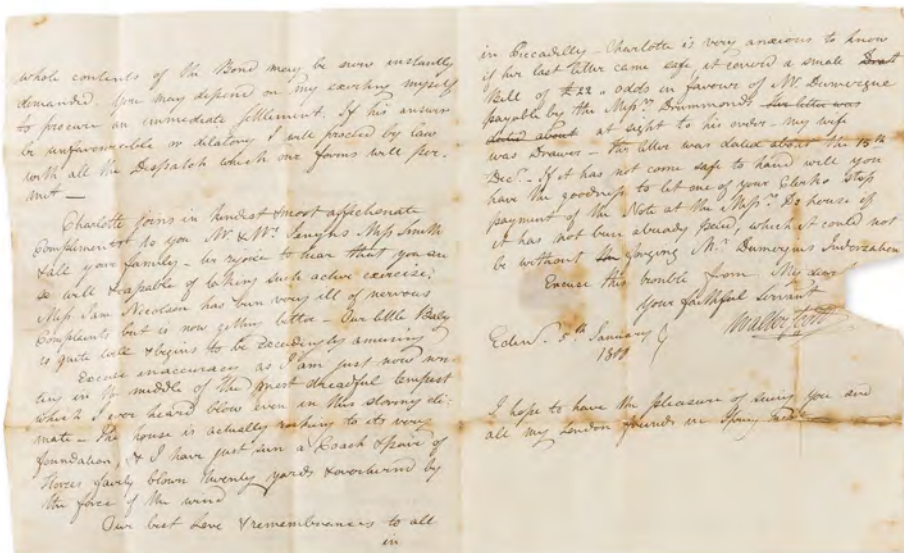 whole contents of the Bond may be now instantly
demanded. You may depend on my exerting myself
to procure an immediate settlement. If his answer
be unfavourable or dilatory I will proceed by law
with all the Despatch which our forms will per-
mit —
Charlotte joins in kindest & most affectionate
Compliments to you Mr. & Mrs. Miss Smith
& all your family – we rejoice to hear that you are
so well & capable of taking such active exercise.
Miss Jane Nicolson has been very ill of nervous
Complaints but is now getting better – Our little Baby
is quite well & begins to be exceedingly amusing
Excuse inaccuracy as I am just now wri-
ting in the middle of the most dreadful tempest
which I ever heard blow even in this stormy cli-
mate – The house is actually rocking to its very
foundation, & I have just seen a Coach & pair of
Horses fairly blown twenty yards & overturned by
the force of the wind
Our best Love & remembrances to all
in
in Piccadilly – Charlotte is very anxious to know
if her last letter came safe it covered a small Draft
Bill of £22 & odds in favour of Mr. Dumergue
payable by the Messrs Drummonds her letter was
dated about at sight to his order – my wife
was Drawer – the letter was dated about the 15th
Decr. – If it has not come safe to hand will you
have the goodness to let one of your Clerks stop
payment of the Note at the Messrs. Ds house if
it has not been already paid, which it could not
be without forging Mr. Dumergues Indorzation
Excuse this trouble from My dear
Your faithful Servant
Walter Scott
Edinr. 5th January
I hope to have the pleasure of seeing you and
all my London friends in Spring